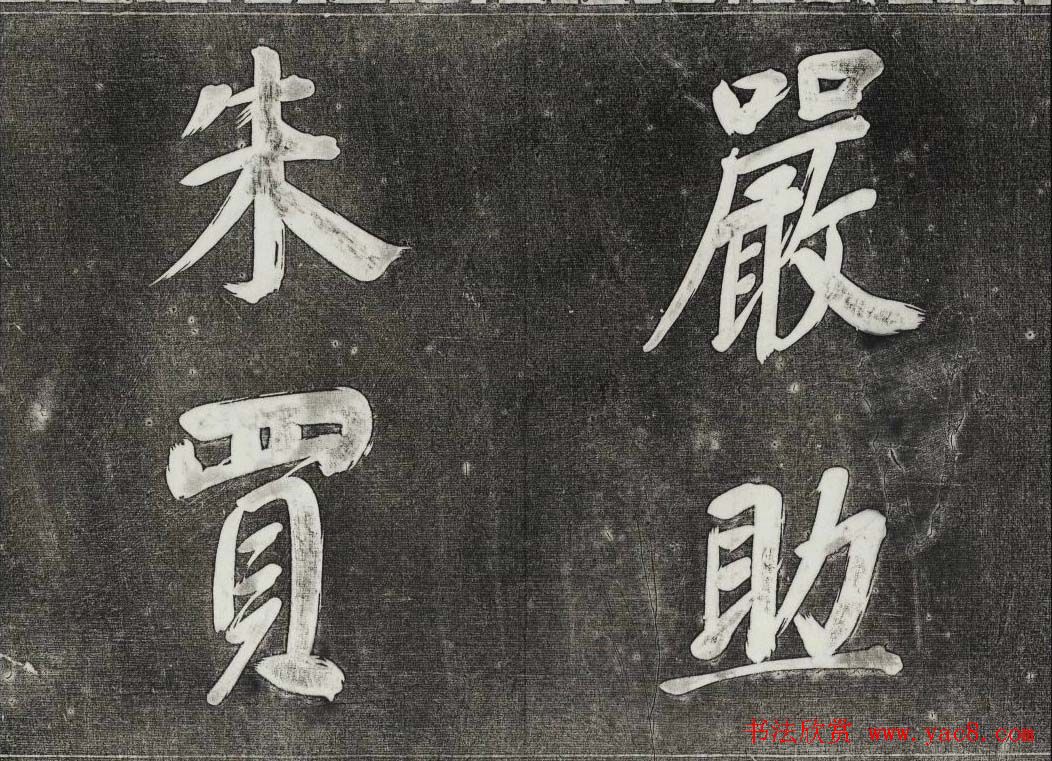 嚴
助
朱
買
书法欣赏 www.yac8.com